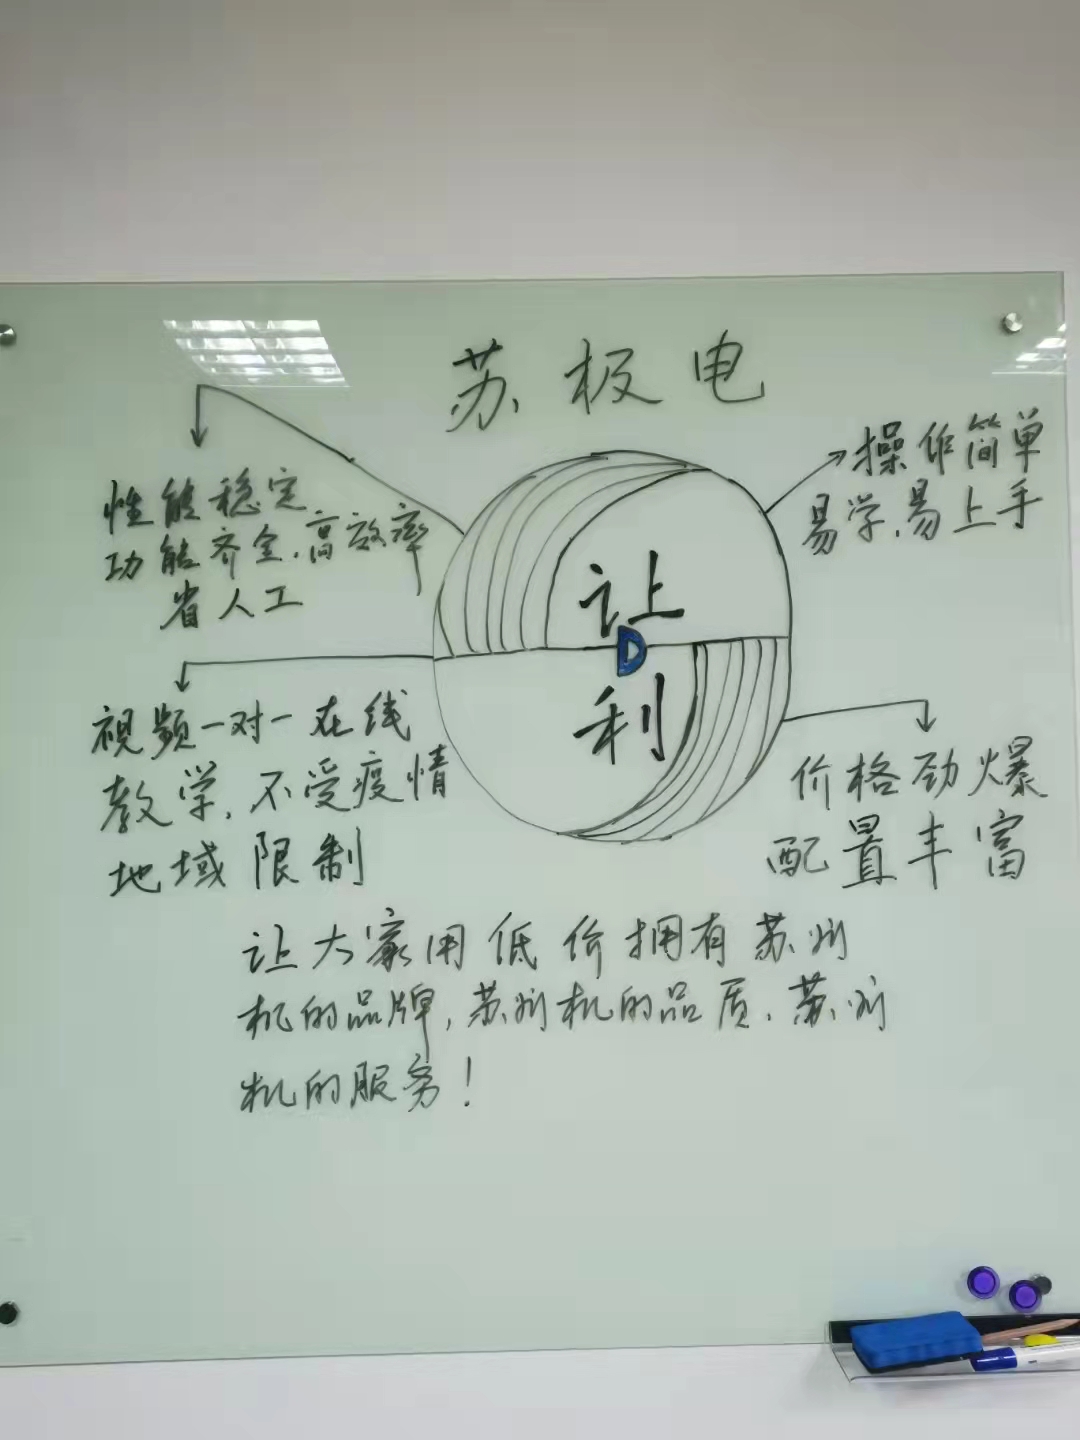 苏极电
性能稳定
功能齐全、高效率
省人工
操作简单
易学,易上手
让
利
视频一对一在线
教学,不受疫情
地域限制
价格劲爆
配置丰富
让大家用低价拥有苏州
机的品牌,苏州机的品质、苏州
机的服务!